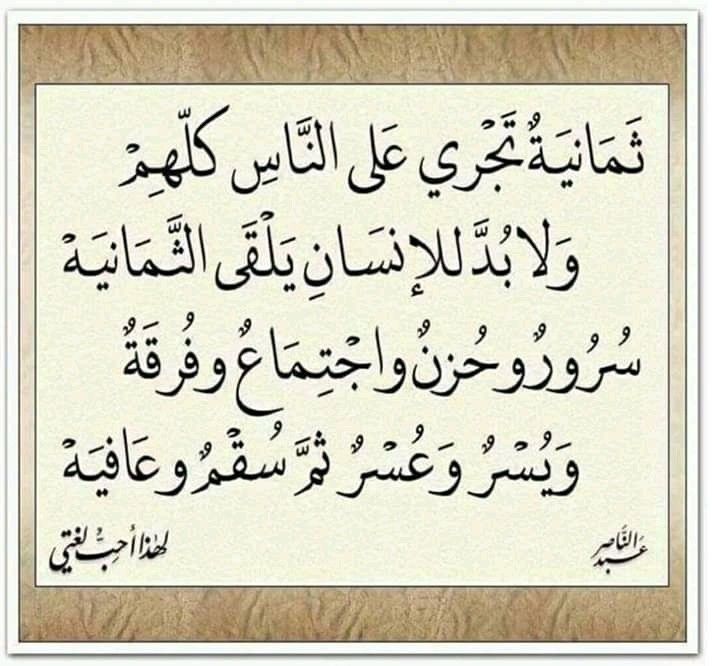 ثَمَانيَةٌ تَجْرِي عَلى النَّاسِ كلّهِمْ
وَلا بُدَّ للإنسَانِ يَلْقَى الثَّمَانيَهْ
سُرُورٌ وحُزنٌ واجْتِمَاعٌ وفُرقَةٌ
وَيُسْرٌ وَعُسْرٌ ثمَّ سُقْمٌ وعَافيَهْ
عَبد النَّاصر
لهٰذا أحِبُّ لغتي